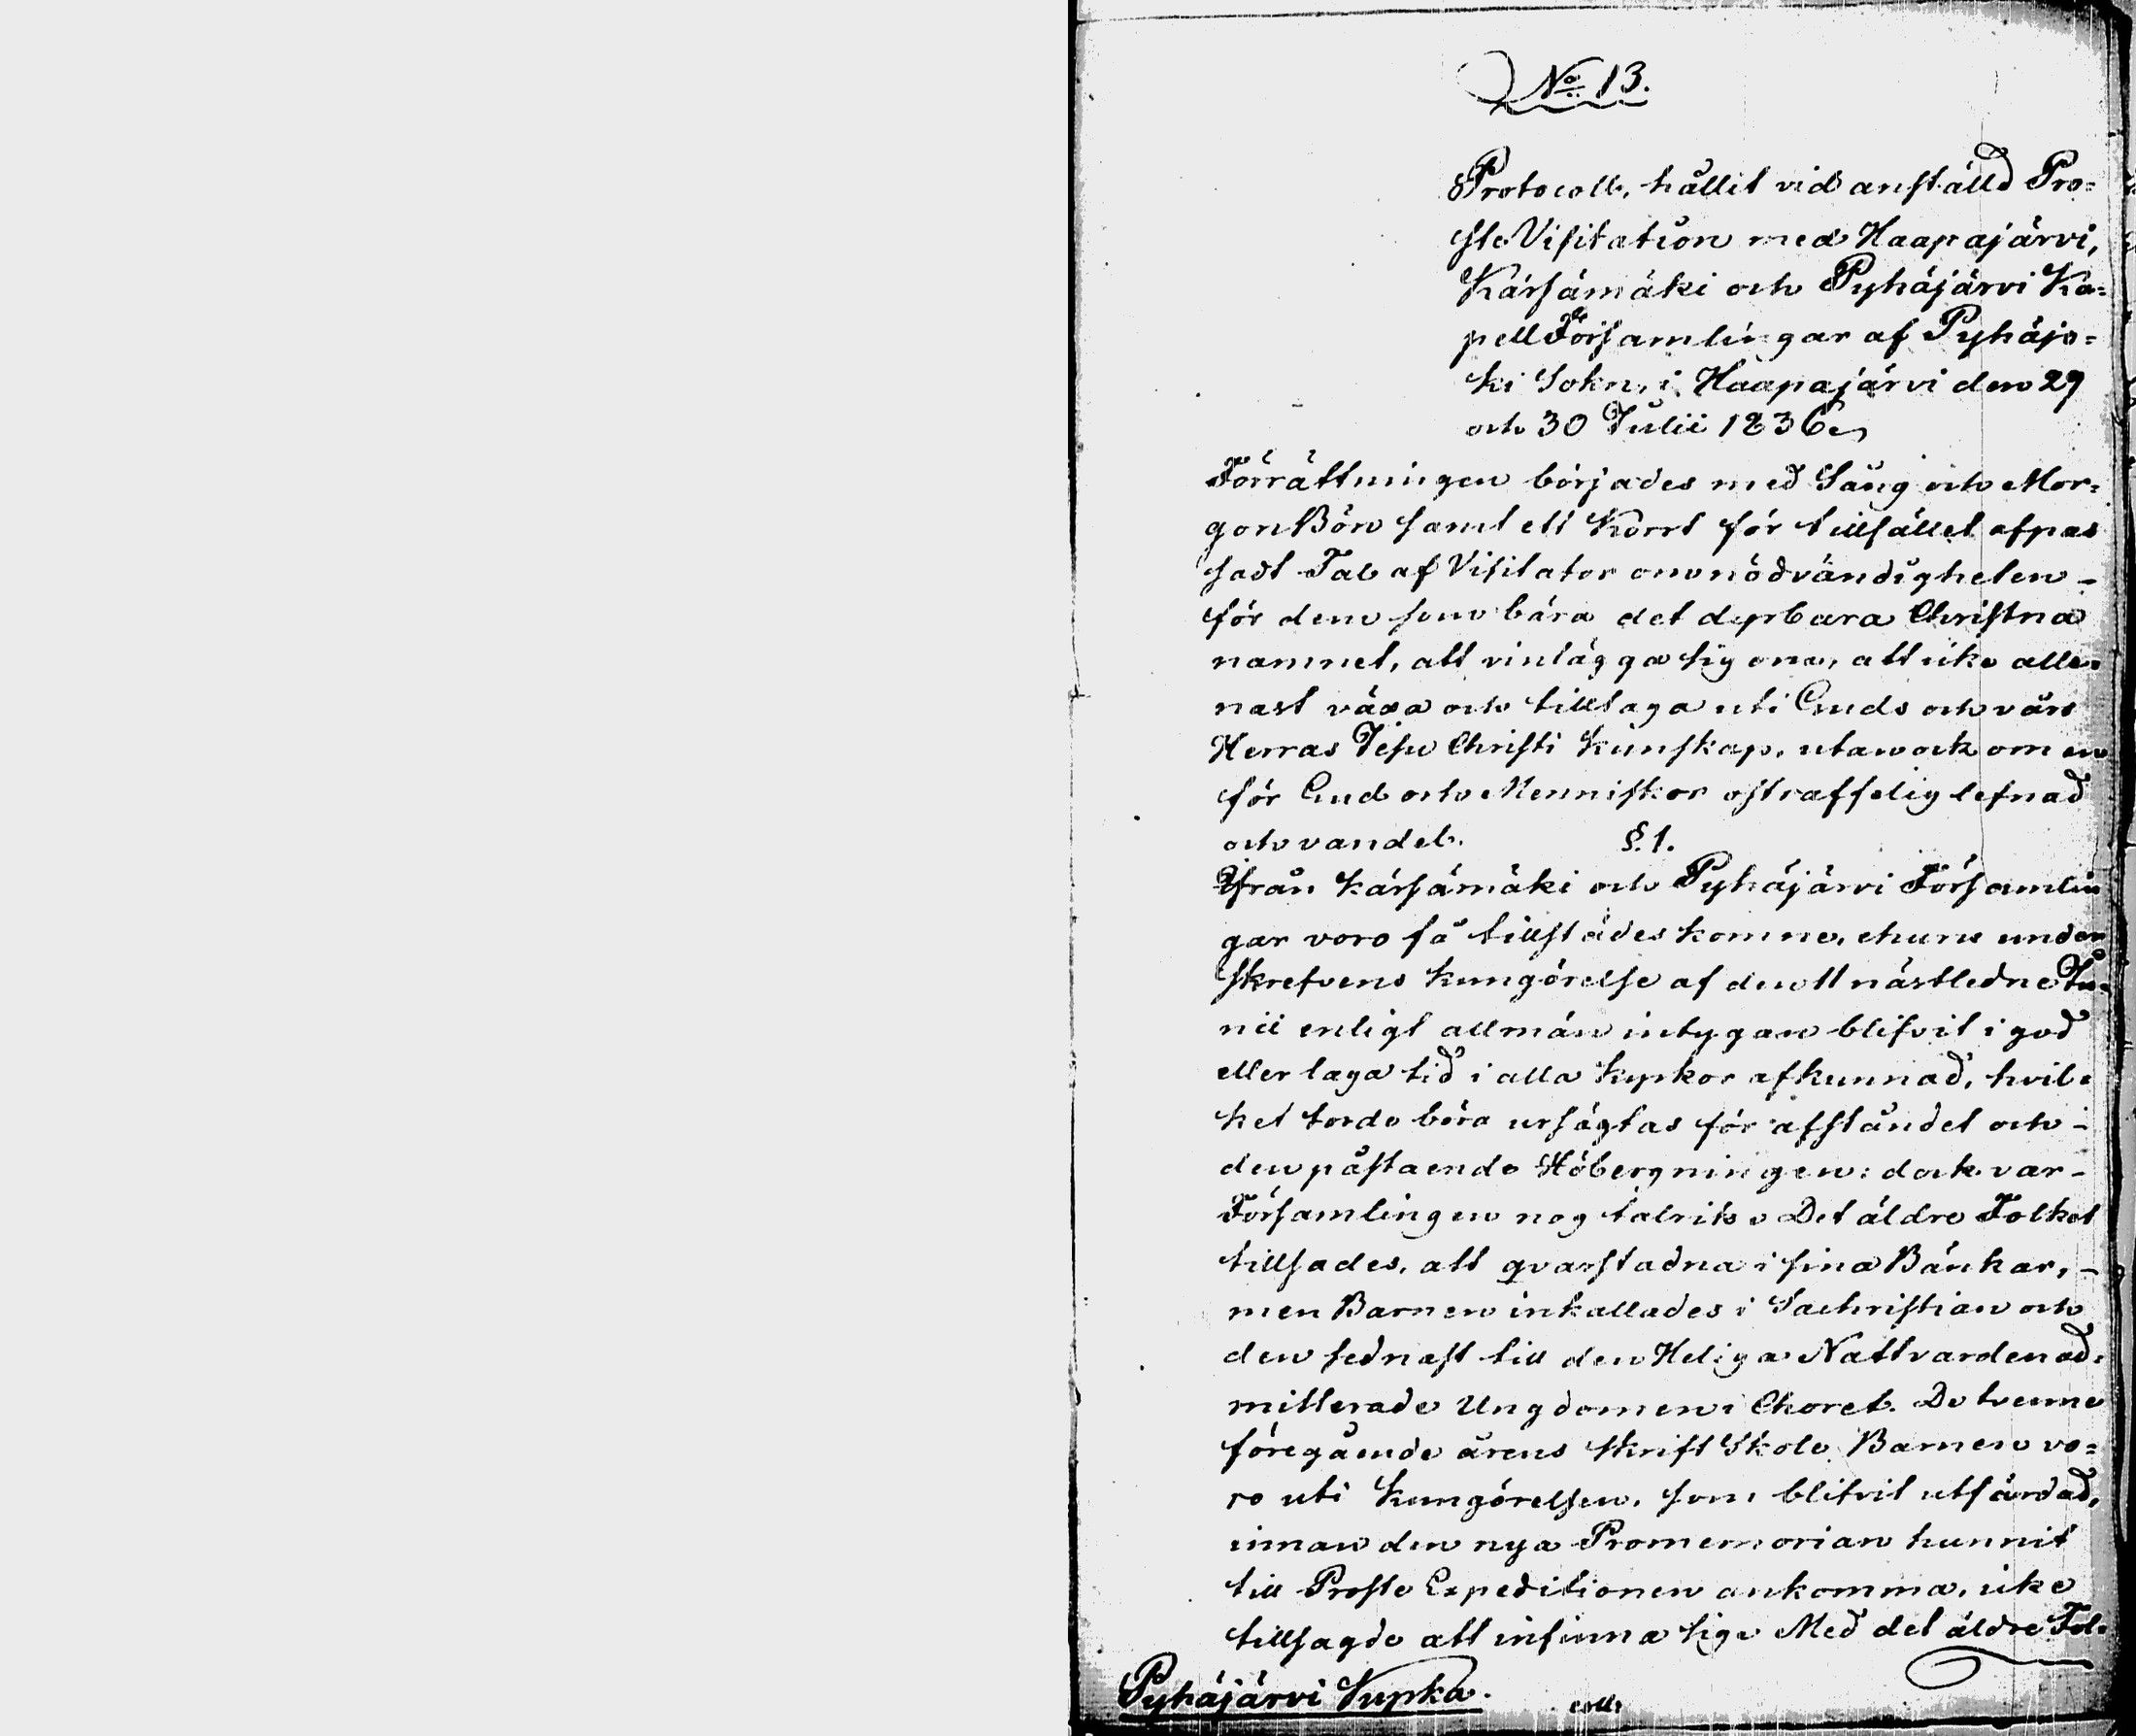 No 13.
Protocoll, hållit vid anställd Pro=
ste Visitation med Haapajärvi,
Kärsämäki och Pyhäjärvi Ka=
pell Församlingar af Pyhäjo=
ki Sokn, i Haapajärvi den 29
och 30 Julii 1836.
Förrättningen börjades med Sång och Mor=
gon Bön samt ett kort för tillfället afpas
sadt Tal af Visitator om nödvändigheten
för dem som bära det dyrbara Christna
namnet, att vinlägga sig om, att icke alle=
nast växa och tilltaga uti Guds och vårs
Herras Jesu Christi kunskap, utan ock om en
för Gud och Menniskor ostraffelig lefnad
och vandel. §. 1.
Ifrån Kärsämäki och Pyhäjärvi Församlin
gar voro få tillstädes komne, ehuru under
skrefvens kungörelse af den 11 nästledne Ju=
nii enligt allmän intygan blifvit i god
eller laga tid i alla kyrkor afkunnad, hvil=
ket torde böra ursägtas för afståndet och
den påstaende Höbergningen: dock var
Församlingen nog talrik. Det äldre Folket
tillsades, att qvarstadna i sina Bänkar,
men Barnen inkallades i Sachristian och
den sednast till den Heliga Nattvarden ad=
mitterade Ungdomen i Choret. De tvenne
föregående årens Skrift Skole Barnen vo=
ro uti kungörelsen, som blifvit utfärdad,
innan den nya Promemorian hunnit
till Proste Expeditionen ankomma, icke
tillsagde att infinna sig. Med det äldre Fol=
Pyhäjärvi Kyrka. coll.